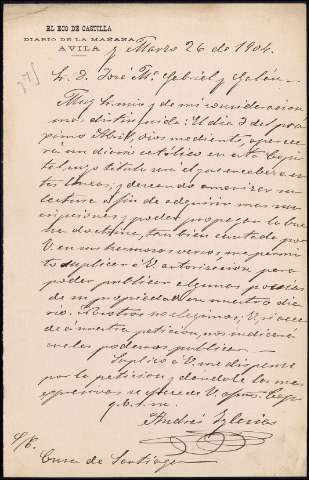 EL ECO DE CASTILLA
DIARIO DE LA MAÑANA
AVILA y Marzo 26 de 1904.
Sr. D. José Mª Gabriel y Galán.
Muy Sr. mio y de mi consideracion
mas distinguida: El dia 3 del pro
ximo Abril, Dios mediante, aparece
rá un diario católico en esta Capi
tal, cuyo titulo será el que encabeza es
tas lineas, y deseando amenizar su
lectura a fin de adquirir mas sus
cripciones y poder propagar la bue
na doctrina, tan bien cantada por
V. en sus hermosos versos, me permi
to suplicar á V. autorizacion para
poder publicar algunas poesias
de su propiedad en nuestro dia
rio. Nosotros no elegimos; V. si acce
de á nuestra peticion, nos indicará
cuales podemos publicar.
Suplico á V. me dispense
por la peticion y dandole las mas
expresivas se ofrece de V. afmo. Capn
q. b. s. m.
Andrés Iglesias
S/C.
Cura de Santiago